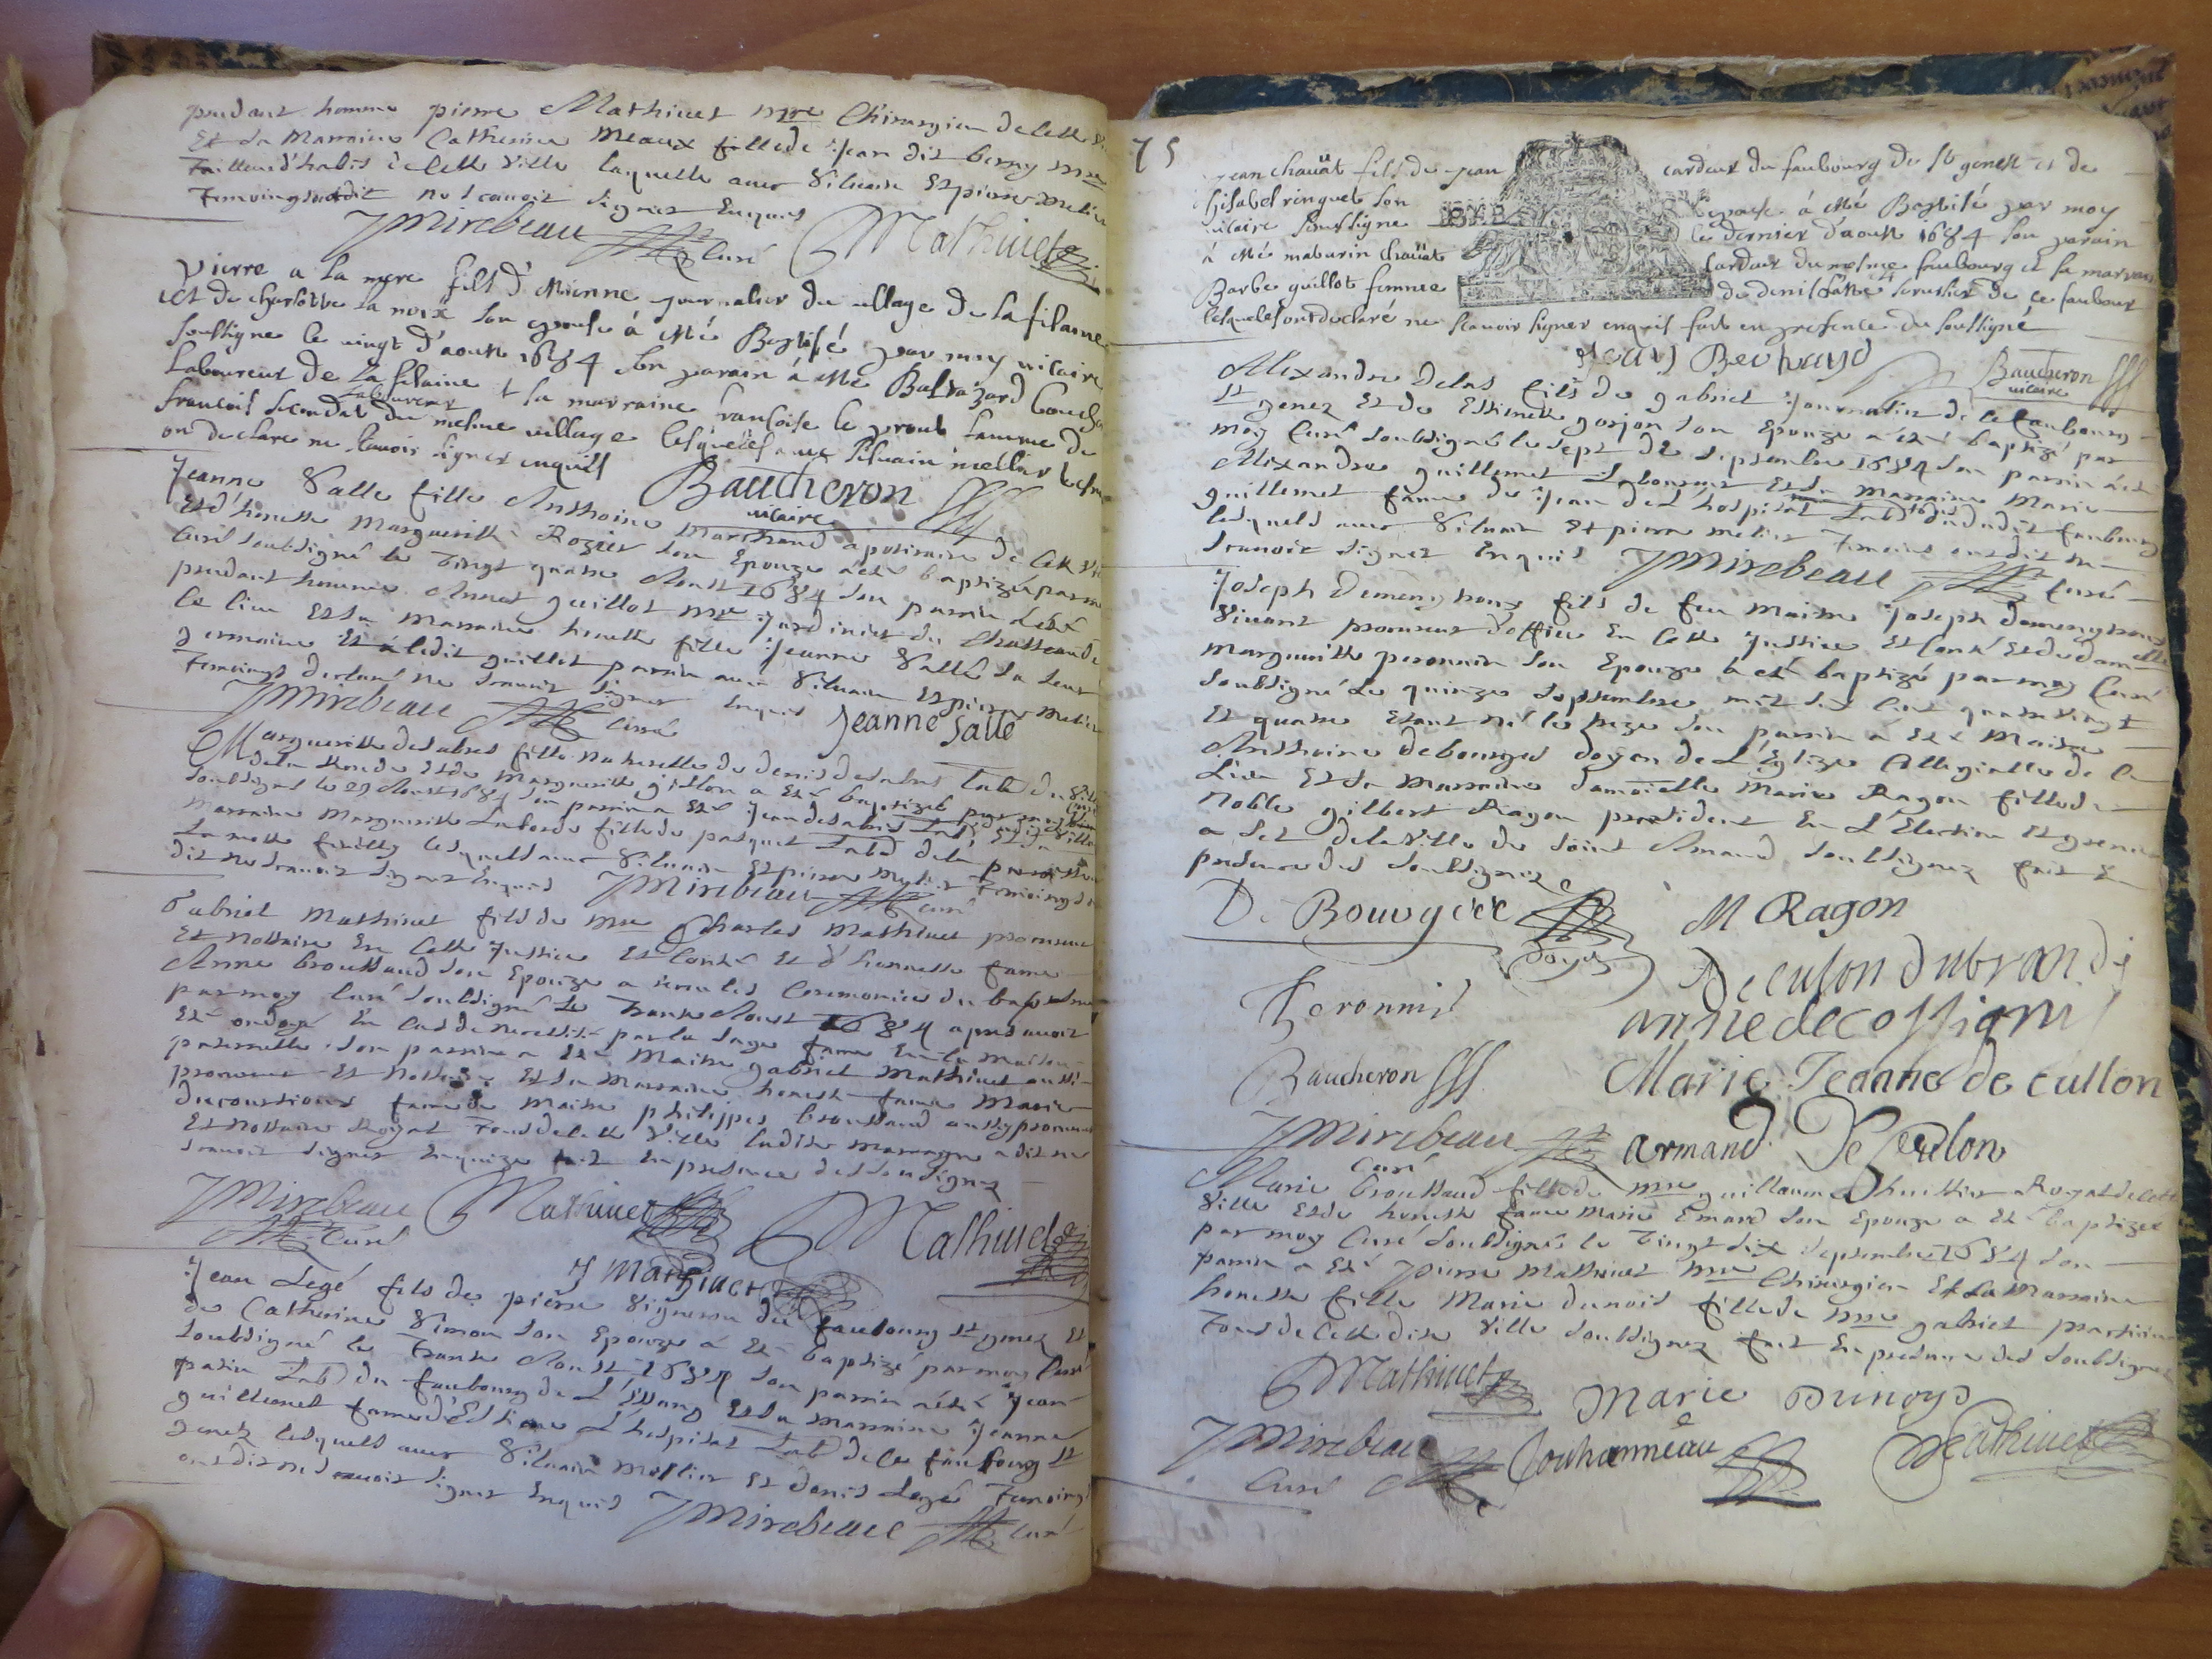 prudant homme pierre Mathivet mre Chirurgien de cette
Et sa Marraine Catherine Meaux fille de Jean dit berry mre
Tailleur d'habis de cette ville laquelle avec Silvain Et pierre melier
Temoings ont dit ne sçavoir signer Enquis
JMirebeau Curé Mathivet
Pierre a la mere fils d'Etienne journalier du village de la filaine
et de charlotte la noix son epouse à esté Baptisé par moy vicaire
soussigne le vingt d'aoust 1684 son parain à esté Baltazard
Laboureur de la filaine et sa marraine françoise le prout femme de
françois secondat laboureur du mesme village lesquels avec silvain mellier
on declare ne sçavoir signer enquis
Baucheron
vicaire
Jeanne Salle fille Anthoine Marchand apoticaire de cette
Et d'honeste Marguerite Rozier son Epouze a esté baptizée par moy
Curé soubsigné le Vingt quatre Aoust 1684 son parrin a esté
prudant homme Annet guillot mre Jardinier du Chasteau de
ce lieu Et sa Marraine honeste fille Jeanne Sallé sa seur
germaine Et a ledit guillot parrin avec Silvain Et pierre melier
Temoings declaré ne sçavoir signer Enquis
JMirebeau Curé Jeanne Sallé
Marguerite desabres fille naturelle de denis desabres lab
Et de Marguerite gillon a esté baptizée par moy
soubsigné le 29 Aoust 1684 son parrin a esté Jean desabres
Marraine Marguerite Laborde fille de pasquet Lab de la parroisse
La motte feuilly lesquels avec Silvain Et pierre melier Temoings
dit ne sçavoir signer Enquis JMirebeau curé
Gabriel Mathivet fils de mre Charles Mathivet procureur
Et Nottaire En Cette Justice Et Conté Et d'honneste fame
Anne broussaud son Epouze a receu les Ceremonies du baptesme
par moy Curé soubsigné le Trente Aoust 1684 apres avoir
Esté ondoyé En Cas de necessité par la sage fame En la maison
paternelle son parrin a esté Maitre gabriel Mathivet aussi
procureur Et Nottaire Et sa Marraine honeste fame Marie
fame de Maitre philippes broussaud aussy procureur
Et Nottaire Royal de cette Ville ladite Marraine a dit ne
sçavoir signer Enquize fait En presence des soubsignez
JMirebeau Curé Mathivet Mathivet
J Mathivet
Jean Legé fils de pierre Vigneron du faubourg St genez Et
de Catherine Simon son Epouze à esté baptizé par moy Curé
soubsigné le Trente Aoust 1684 son parrin a esté Jean
patin Lab du faubourg de L'Estang Et sa Marraine Jeanne
guillemet fame d'Estienne L'hospital Lab de ce faubourg St
genez lesquels avec Silvain Mellier Et denis Legé Temoings
ont dit ne sçavoir signer Enquis JMirebeau Curé
75
Jean chaüat fils de Jean cardeur du faubourg de St genest et de
Elisabel ringuet son Epouse à esté Baptisé par moy
vicaire soussigne le dernier d'aoust 1684 son parain
à esté maturin chaüat cardeur du mesme faubourg et sa marraine
Barbe guillot femme de denis serrurier de ce faubourg
lesquels ont declaré ne sçavoir signer enquis fait en presence du soussigné
Jean Bertrand
Baucheron
vicaire
Alexandre delas fils de gabriel Journalier de ce faubourg
St genez Et de Estienette gorjon son Epouze a esté baptizé par
moy Curé soubsigné le sept de septembre 1684 son parrin a esté
Alixandre guillemet Laboureur Et sa Marraine Marie
guillemet fame de Jean de L'hospital Lab dudit faubourg
lesquels avec Silvain Et pierre melier Temoins ont dit ne
sçavoir signer Enquis JMirebeau Curé
Joseph Demenghoux fils de feu Maitre Joseph domenghoux
Vivant procureur d'office En Cette Justice Et Conté Et de damelle
Marguerite peronnin son Epouze a esté baptizé par moy Curé
soubsigné Le quinze septembre mil six Cent quatre Vingt
Et quatre Estant né le treize son parrin a Esté Maitre
Anthoine debourges doyen de L'Eglize Collegialle de ce
Lieu Et sa Marraine damoizelle Marie Ragon fille de
Noble gilbert Ragon president En L'Election Et grenier
a sel de la Ville de Saint Amand soubsignez fait En
presence des soubsignez
De Bourges doyen M Ragon
De culon dubrandy
Peronnin anne de cossigni
Baucheron Marie Jeanne de cullon
JMirebeau Curé armand De Culon
Marie broussaud fille de mre guillaume huissier Royal de cette
Ville Et de honeste fame Marie Emard son Epouze a esté baptizée
par moy Curé soubsigné le Vingt six septembre 1684 son
parrin a Esté pierre Mathivet mre Chirurgien Et La Marraine
honeste fille Marie dunois fille de mre gabriel praticien
Tous de Cette dite Ville soubsignez fait En presence des soubsignez
Mathivet Marie Dunoys
JMirebeau Curé Couhanneau Mathivet